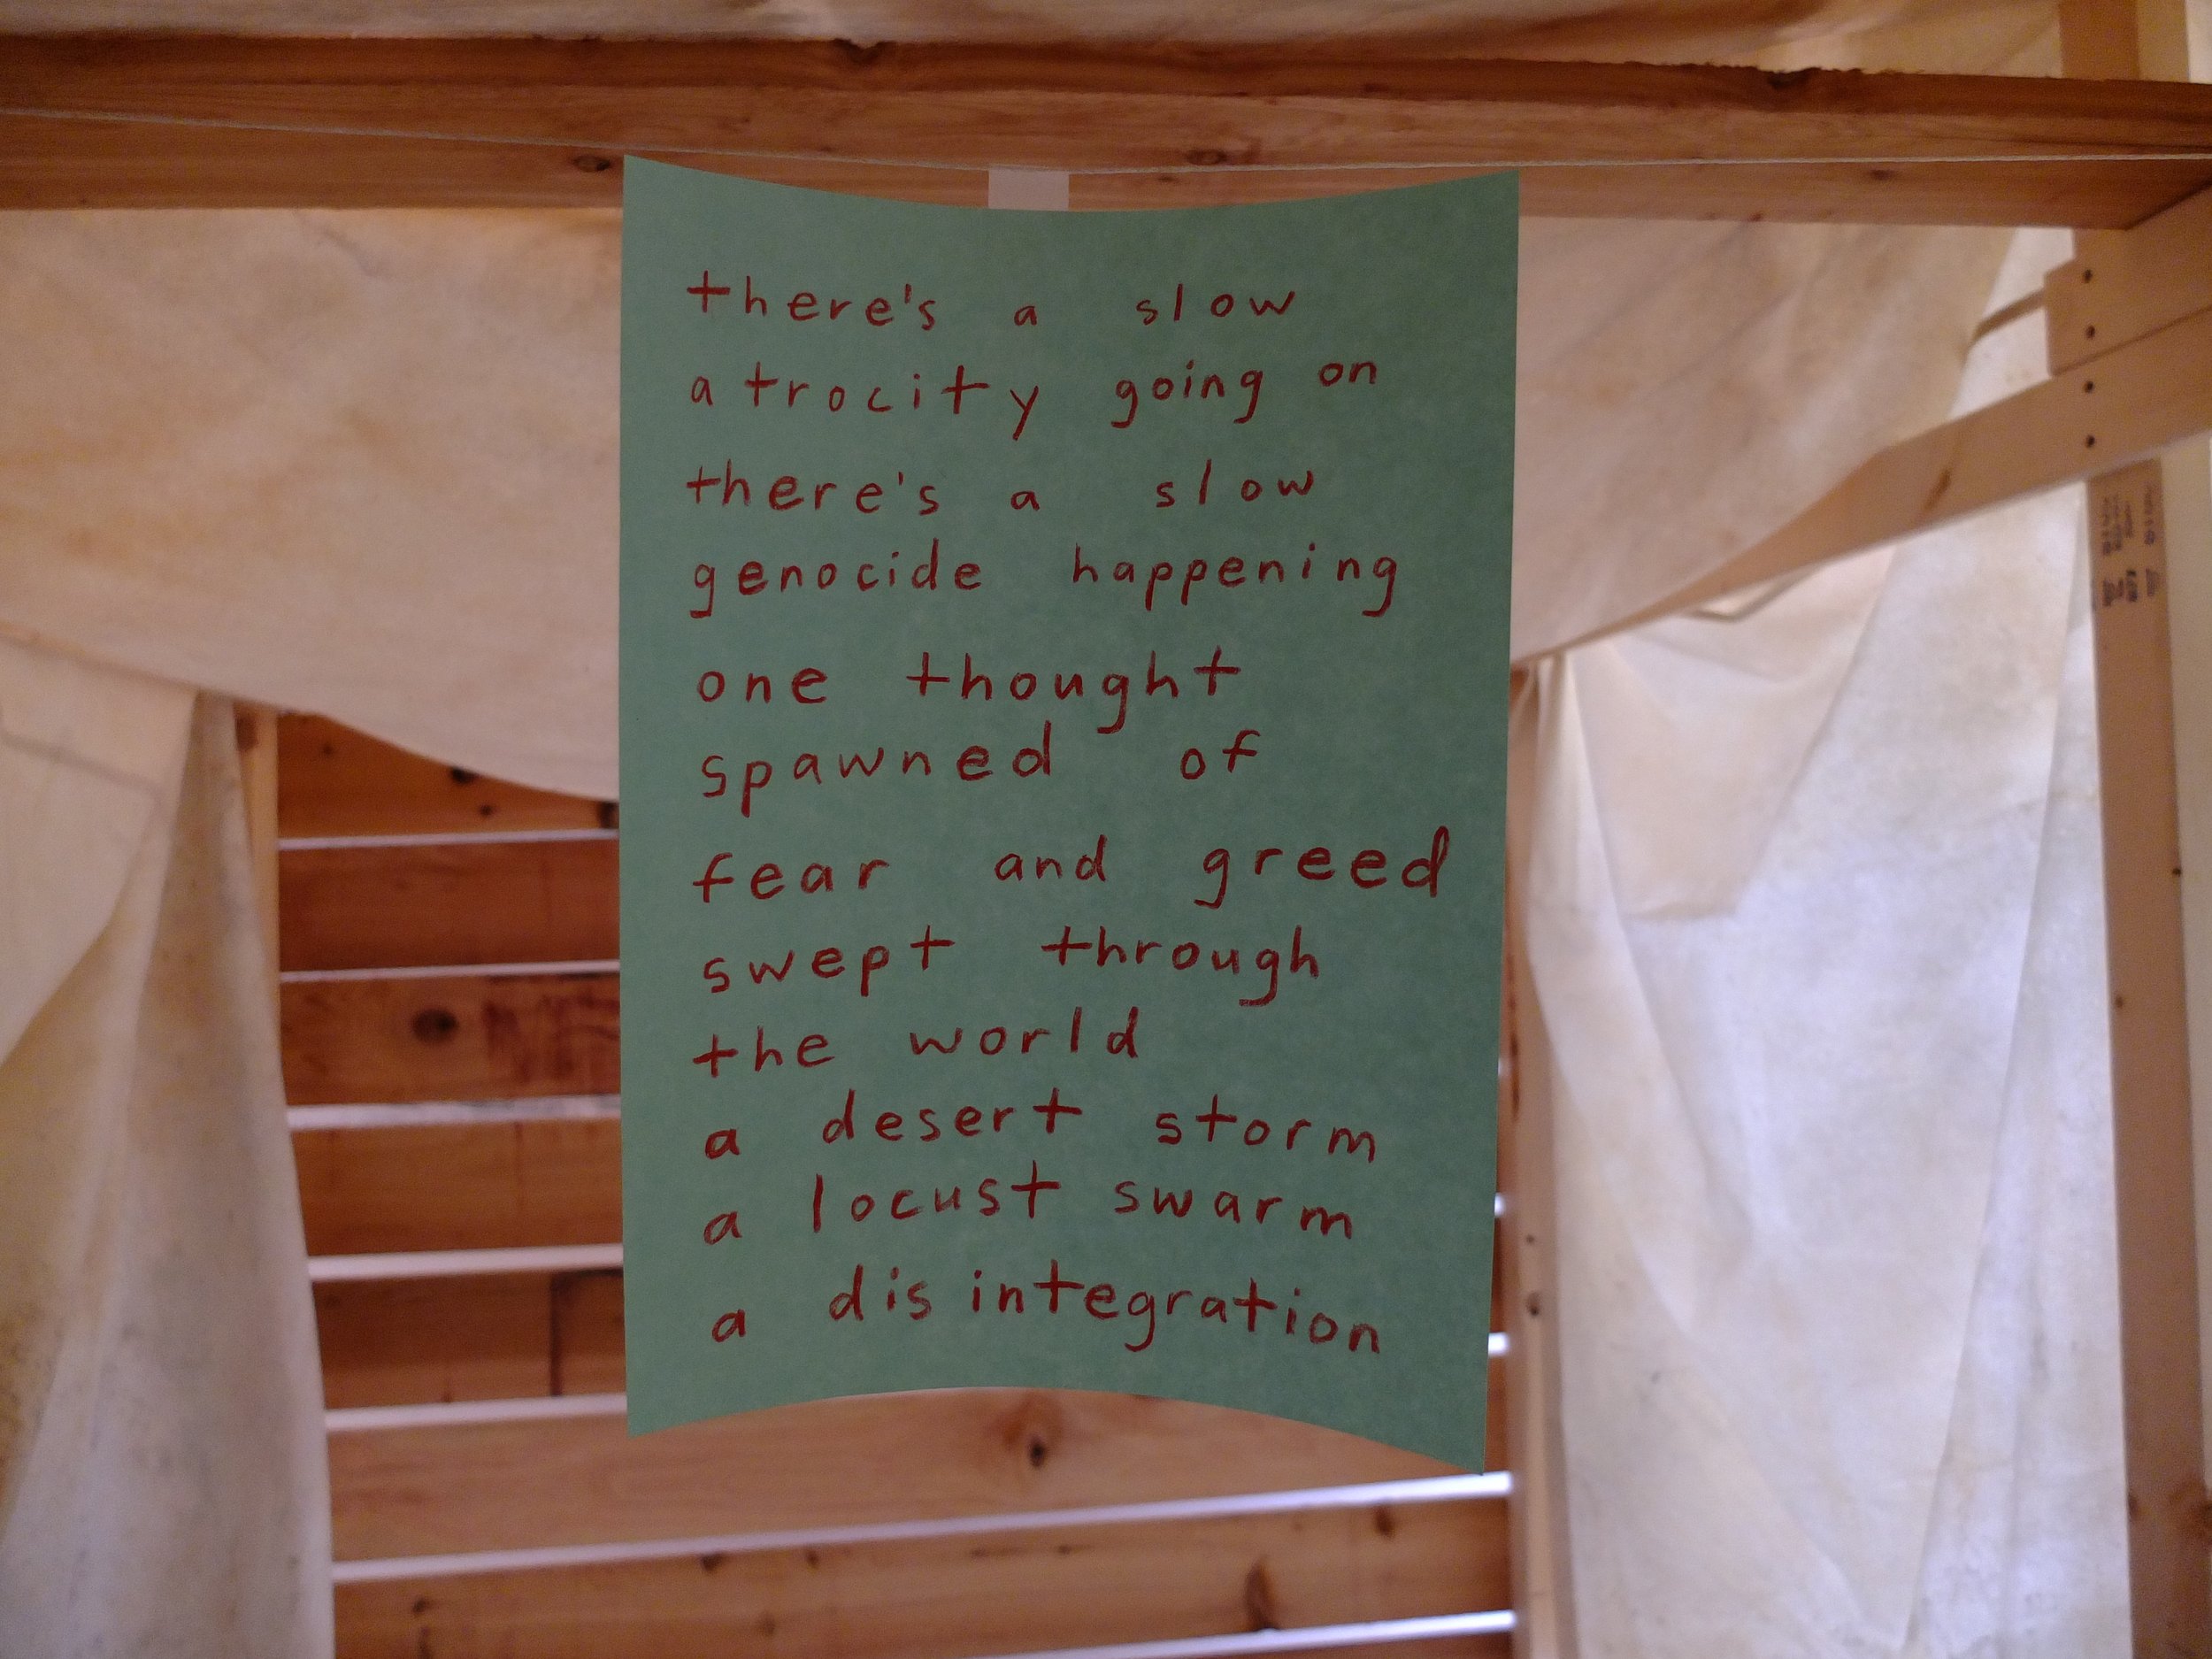 there's a slow
atrocity going on
there's a slow
genocide happening
one thought
spawned of
fear and greed
swept through
the world
a desert storm
a locust swarm
a disintegration